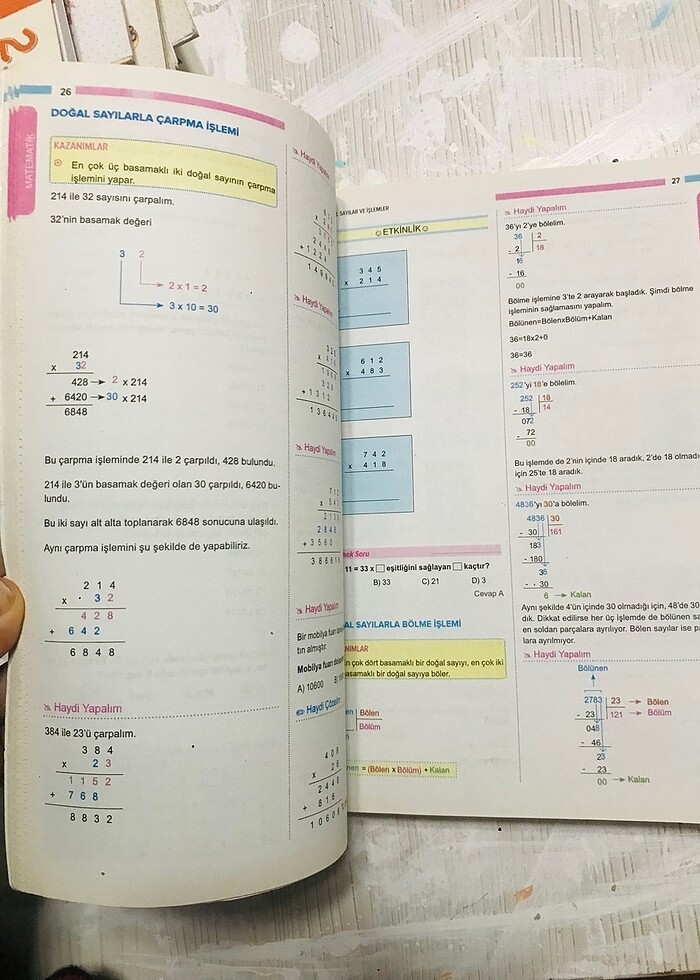 26
MATEMATİK
DOĞAL SAYILARLA ÇARPMA İŞLEMİ
KAZANIMLAR
En çok üç basamaklı iki doğal sayının çarpma
işlemini yapar.
214 ile 32 sayısını çarpalım.
32'nin basamak değeri
3 2
2 x 1 = 2
3 x 10 = 30
214
x 32
428 → 2 x 214
+ 6420 → 30 x 214
6848
Bu çarpma işleminde 214 ile 2 çarpıldı, 428 bulundu.
214 ile 3'ün basamak değeri olan 30 çarpıldı, 6420 bu-
lundu.
Bu iki sayı alt alta toplanarak 6848 sonucuna ulaşıldı.
Aynı çarpma işlemini şu şekilde de yapabiliriz.
2 1 4
x 3 2
4 2 8
+ 6 4 2
6 8 4 8
Haydi Yapalım
384 ile 23'ü çarpalım.
3 8 4
x 2 3
1 1 5 2
+ 7 6 8
8 8 3 2
Haydi Yapalım
Haydi Yapalım
Haydi Yapalım
Haydi Yapalım
Bir mobilya fuarı
tın almıştır.
Mobilya fuarı
A) 10600
Haydi Çözelim
4 0 8
x 2 6
2 4 4 8
+ 8 1 6
1 0 6 0 8
SAYILAR VE İŞLEMLER
ETKİNLİK
3 4 5
x 2 1 4
6 1 2
x 4 8 3
7 4 2
x 4 1 8
Soru
11 = 33 x □ eşitliğini sağlayan □ kaçtır?
B) 33 C) 21 D) 3
Cevap A
SAYILARLA BÖLME İŞLEMİ
çok dört basamaklı bir doğal sayıyı, en çok iki
basamaklı bir doğal sayıya böler.
Bölen
Bölüm
= (Bölen x Bölüm) + Kalan
27
Haydi Yapalım
36'yı 2'ye bölelim.
36 2
- 2 18
16
- 16
00
Bölme işlemine 3'te 2 arayarak başladık. Şimdi bölme
işleminin sağlamasını yapalım.
Bölünen=BölenxBölüm+Kalan
36=18x2+0
36=36
Haydi Yapalım
252'yi 18'e bölelim.
252 18
- 18 14
072
- 72
00
Bu işlemde de 2'nin içinde 18 aradık, 2'de 18 olmadı
için 25'te 18 aradık.
Haydi Yapalım
4836'yı 30'a bölelim.
4836 30
- 30 161
183
- 180
36
- 30
6 → Kalan
Aynı şekilde 4'ün içinde 30 olmadığı için, 48'de 30
dık. Dikkat edilirse her üç işlemde de bölünen
en soldan parçalara ayrılıyor. Bölen sayılar ise
lara ayrılmıyor.
Haydi Yapalım
Bölünen
2783 23 → Bölen
- 23 121 → Bölüm
048
- 46
23
- 23
00 → Kalan